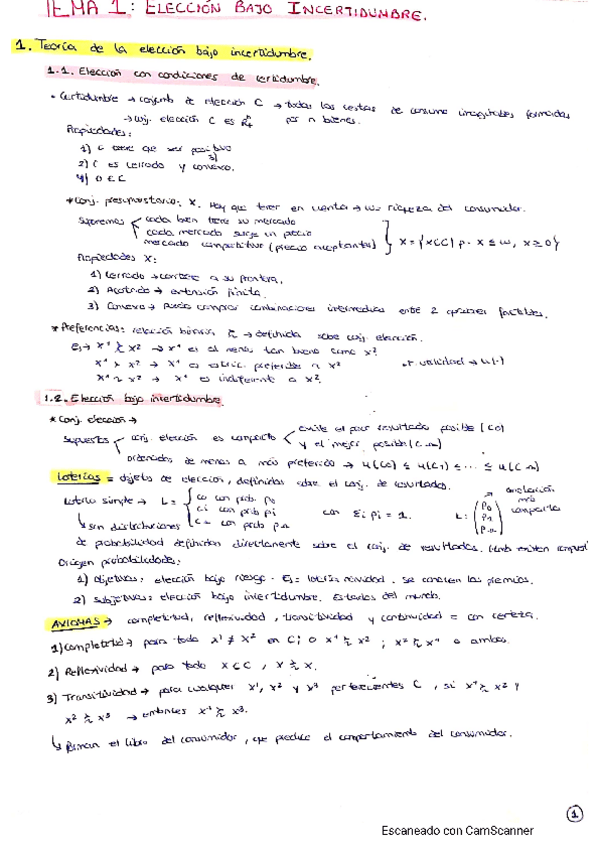 TEMA 1: ELECCIÓN BAJO INCERTIDUMBRE.
1. Teoría de la elección bajo incertidumbre.
1.1. Elección con condiciones de certidumbre.
• Certidumbre → conjunto de elección C → todas las cestas de consumo formadas
→ conj. elección C es por n bienes.
Propiedades:
1) C tiene que ser positivo
2) C es cerrado y 3) convexo.
4) 0 ∈ C
* Conj. presupuestario: X. Hay que tener en cuenta → riqueza del consumidor.
Suponemos cada bien tiene su mercado
cada mercado surge un precio
mercado competitivo (precio aceptantes) X = {x∈C | p · x ≤ w, x ≥ 0}
Propiedades X:
1) Cerrado → contiene a su frontera.
2) Acotado → extensión finita.
3) Convexo → Puedo comprar combinaciones intermedias entre 2 opciones factibles.
* Preferencias: relación binaria ≿ → definida sobre conj. elección.
Ej → x¹ ≿ x² → x¹ es al menos tan bueno como x²
x¹ ≻ x² → x¹ es estric. preferible a x² utilidad → u(·)
x¹ ~ x² → x¹ es indiferente a x².
1.2. Elección bajo incertidumbre
* Conj. elección →
Supuestos conj. elección es compacto existe el peor resultado posible (C0)
y el mejor posible (Cn)
Ordenados de menos a más preferido → u(C0) ≤ u(C1) ≤ ... ≤ u(Cn)
Loterías = objetos de elección, definidas sobre el conj. de resultados.
notación más compacta
Lotería simple → L = C0 con prob. p0
Ci con prob pi con Σi pi = 1. L: (p0 p1 pn)
Cn con prob pn
↳ son distribuciones
de probabilidad definidas directamente sobre el conj. de resultados.
Origen probabilidades:
1) Objetivas: elección bajo riesgo. Ej = lotería navidad. Se conocen los premios.
2) Subjetivas: elección bajo incertidumbre. Estados del mundo.
AXIOMAS → completitud, reflexividad, transitividad y continuidad = con certeza.
1) Completitud → para todo x¹ ≠ x² en C; o x¹ ≿ x²; x² ≿ x¹ o ambos.
2) Reflexividad → para todo x ∈ C, x ≿ x.
3) Transitividad → para cualquier x¹, x² y x³ pertenecientes C, si x¹ ≿ x² y
x² ≿ x³ → entonces x¹ ≿ x³.
↳ el del consumidor, que predice el comportamiento del consumidor.
1
Escaneado con CamScanner